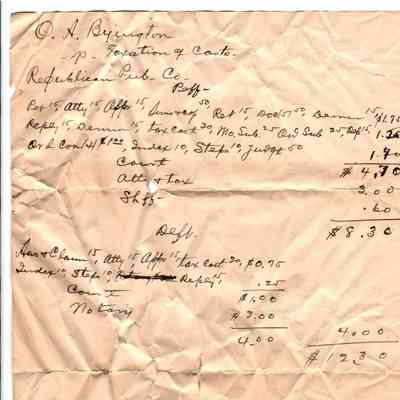 O. A. Byington
-p- Taxation of Costs.
Republican Pub. Co.
Plff-
Pet 15, Atty 15, Appr 15, 50, Ret 15, Doc 50, Demurr 15, $1.75
Reply 15, Demurr 15, tax cost 20, Mo. Sub. 25 Ord Sub 25, 15, 1.20
Ord Con. $1.20, Index 10, Steps 10, Judgt 50
1.70
Court $4.70
Atty & tax 3.00
Shff- .60
$8.30
Deft.
15, Atty 15, Appr 15, tax cost 20, $0.75
Index 10, Steps 10, Reply 15, .25
Court $1.00
Notary $3.00
4.00
4.00
$12.30